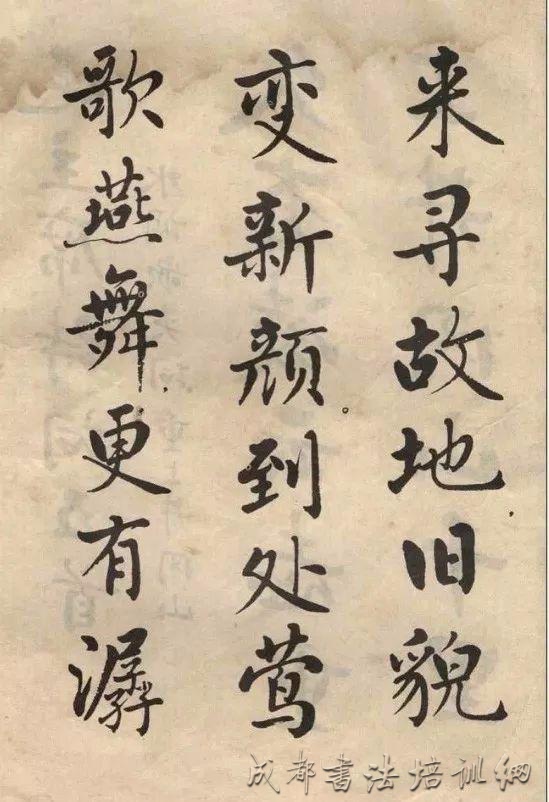 来寻故地，旧貌
变新颜。到处莺
歌燕舞，更有潺
成都书法培训网